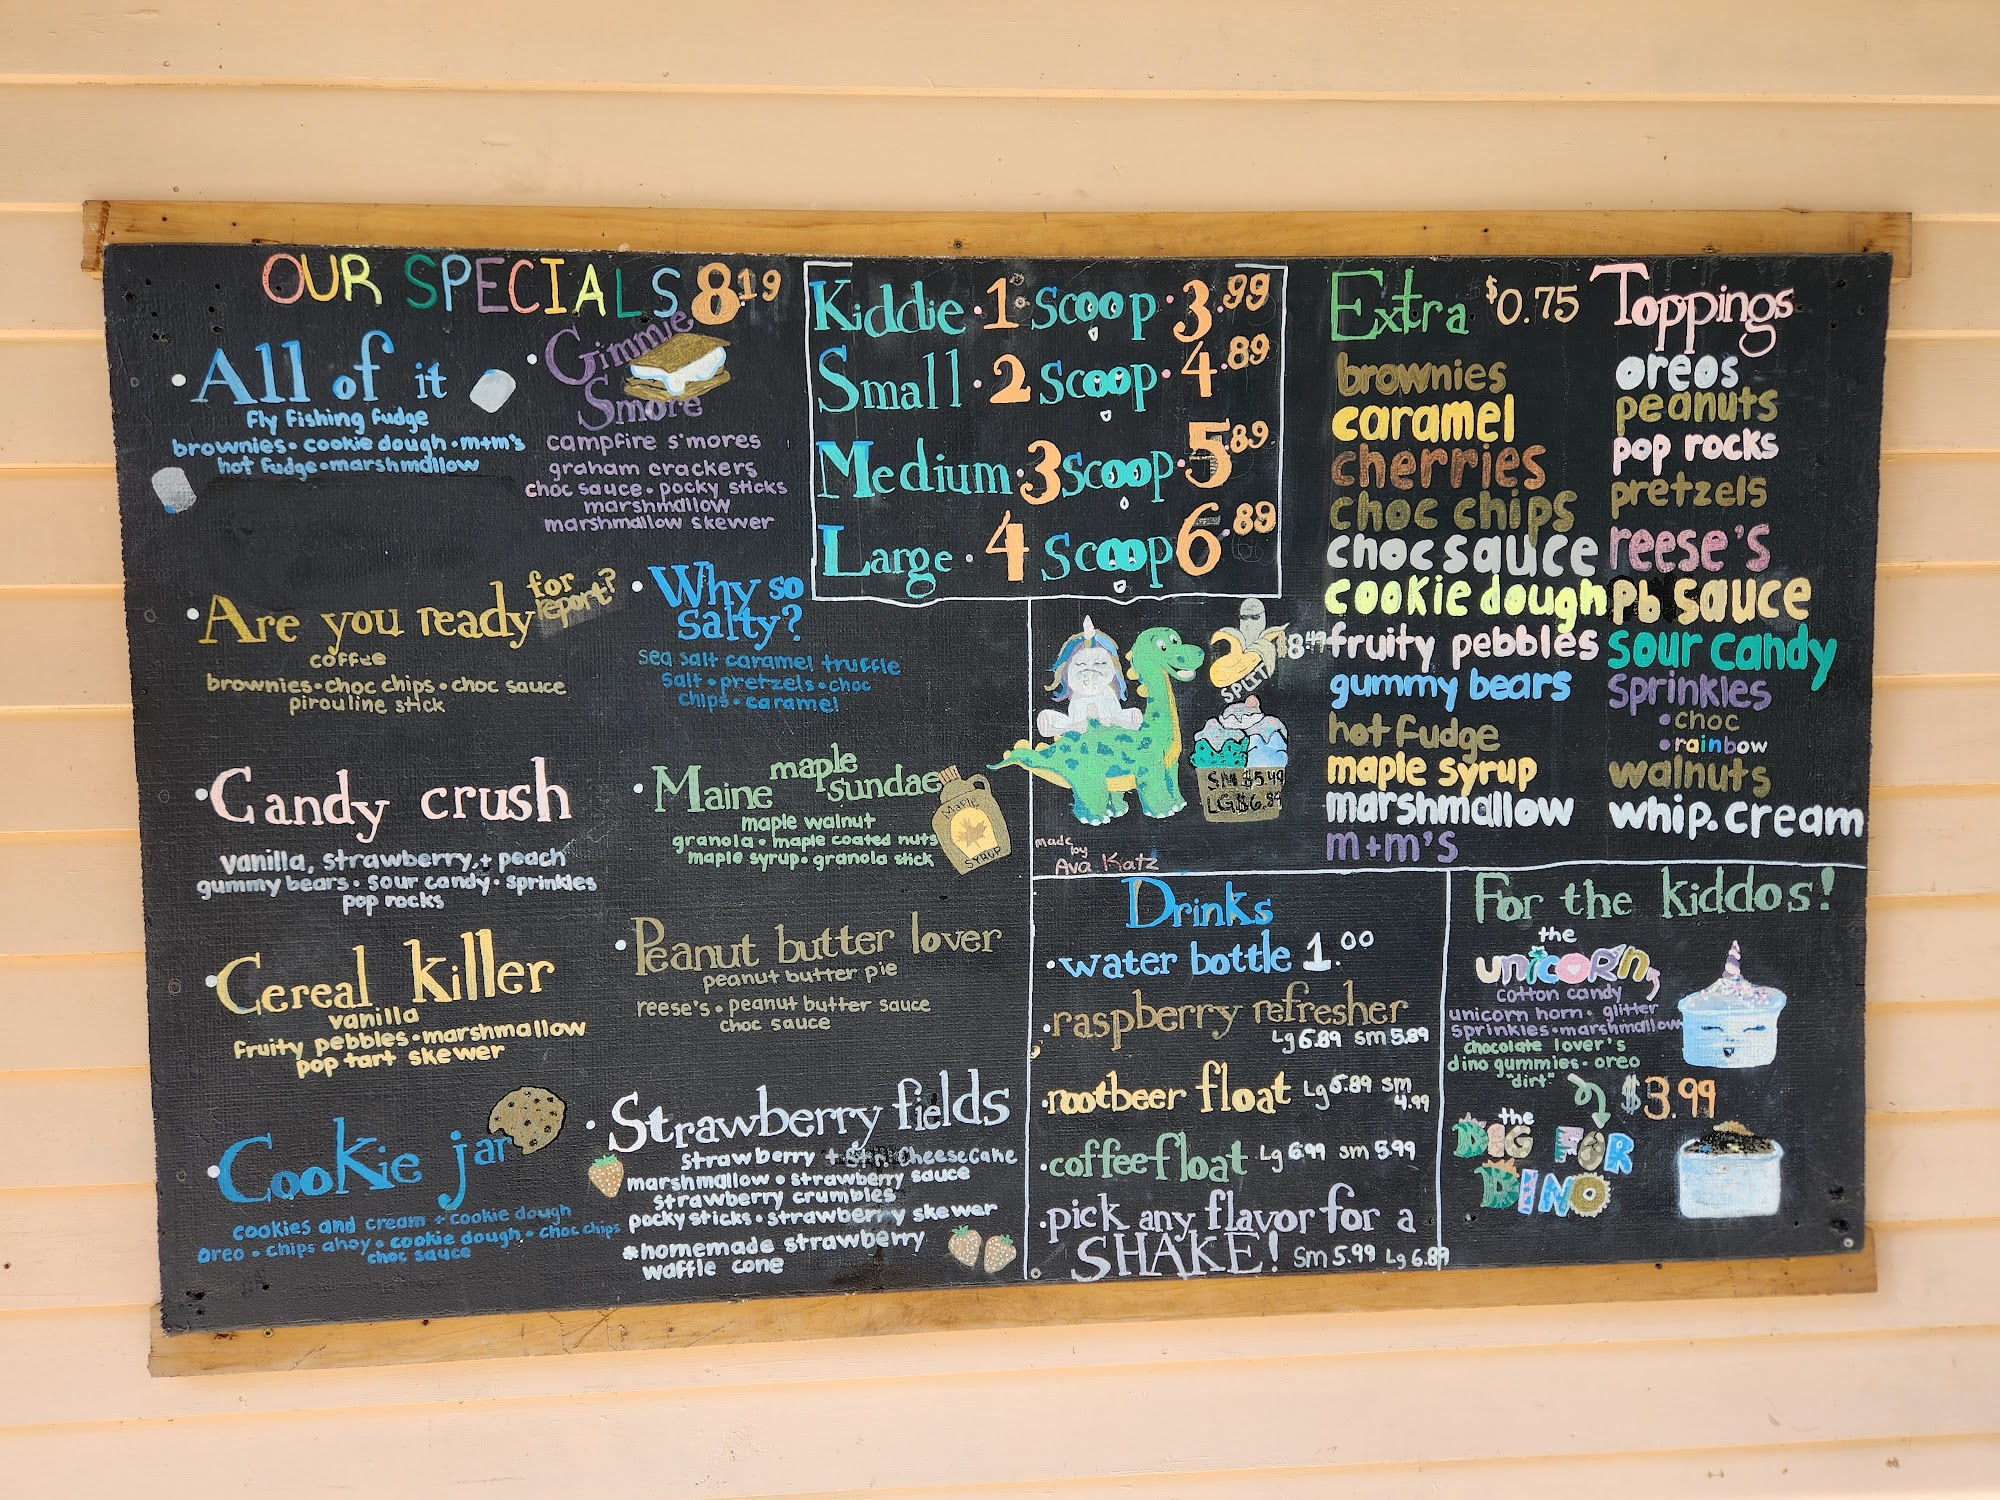 OUR SPECIALS 8.19
All of it
Fly Fishing fudge
brownies • cookie dough • m+m's
hot fudge • marshmallow
Gimmie
Smore
campfire s'mores
graham crackers
choc sauce • pocky sticks
marshmallow
marshmallow skewer
Are you ready for report?
coffee
brownies • choc chips • choc sauce
pirouline stick
Why so
salty?
sea salt caramel truffle
salt • pretzels • choc
chips • caramel
Candy crush
vanilla, strawberry, + peach
gummy bears • sour candy • sprinkles
pop rocks
Maine maple sundae
maple walnut
granola • maple coated nuts
maple syrup • granola stick
Maple
SYRUP
Cereal killer
vanilla
fruity pebbles • marshmallow
pop tart skewer
Peanut butter lover
peanut butter pie
reese's • peanut butter sauce
choc sauce
Cookie jar
cookies and cream + cookie dough
oreo • chips ahoy • cookie dough • choc chips
choc sauce
Strawberry fields
strawberry + cheesecake
marshmallow • strawberry sauce
strawberry crumbles
pocky sticks • strawberry skewer
*homemade strawberry
waffle cone
Kiddie • 1 Scoop • 3.99
Small • 2 Scoop • 4.89
Medium • 3 Scoop • 5.89
Large • 4 Scoop 6.89
SPLIT
$8.49
SM $5.49
LG $6.
made
by
Ava Katz
Extra $0.75 Toppings
brownies
caramel
cherries
choc chips
choc sauce
cookie dough
fruity pebbles
gummy bears
hot fudge
maple syrup
marshmallow
m+m's
oreos
peanuts
pop rocks
pretzels
reese's
pb sauce
sour candy
sprinkles
• choc
• rainbow
walnuts
whip. cream
Drinks
• water bottle 1.00
• raspberry refresher
Lg 6.89 sm 5.89
• rootbeer float Lg 5.89 sm
4.99
• coffee float Lg 6.99 sm 5.99
• pick any flavor for a
SHAKE! Sm 5.99 Lg 6.89
For the kiddos!
the
unicorn
cotton candy
unicorn horn • glitter
sprinkles • marshmallow
chocolate lover's
dino gummies • oreo
"dirt"
$3.99
the
DIG FOR
DINO